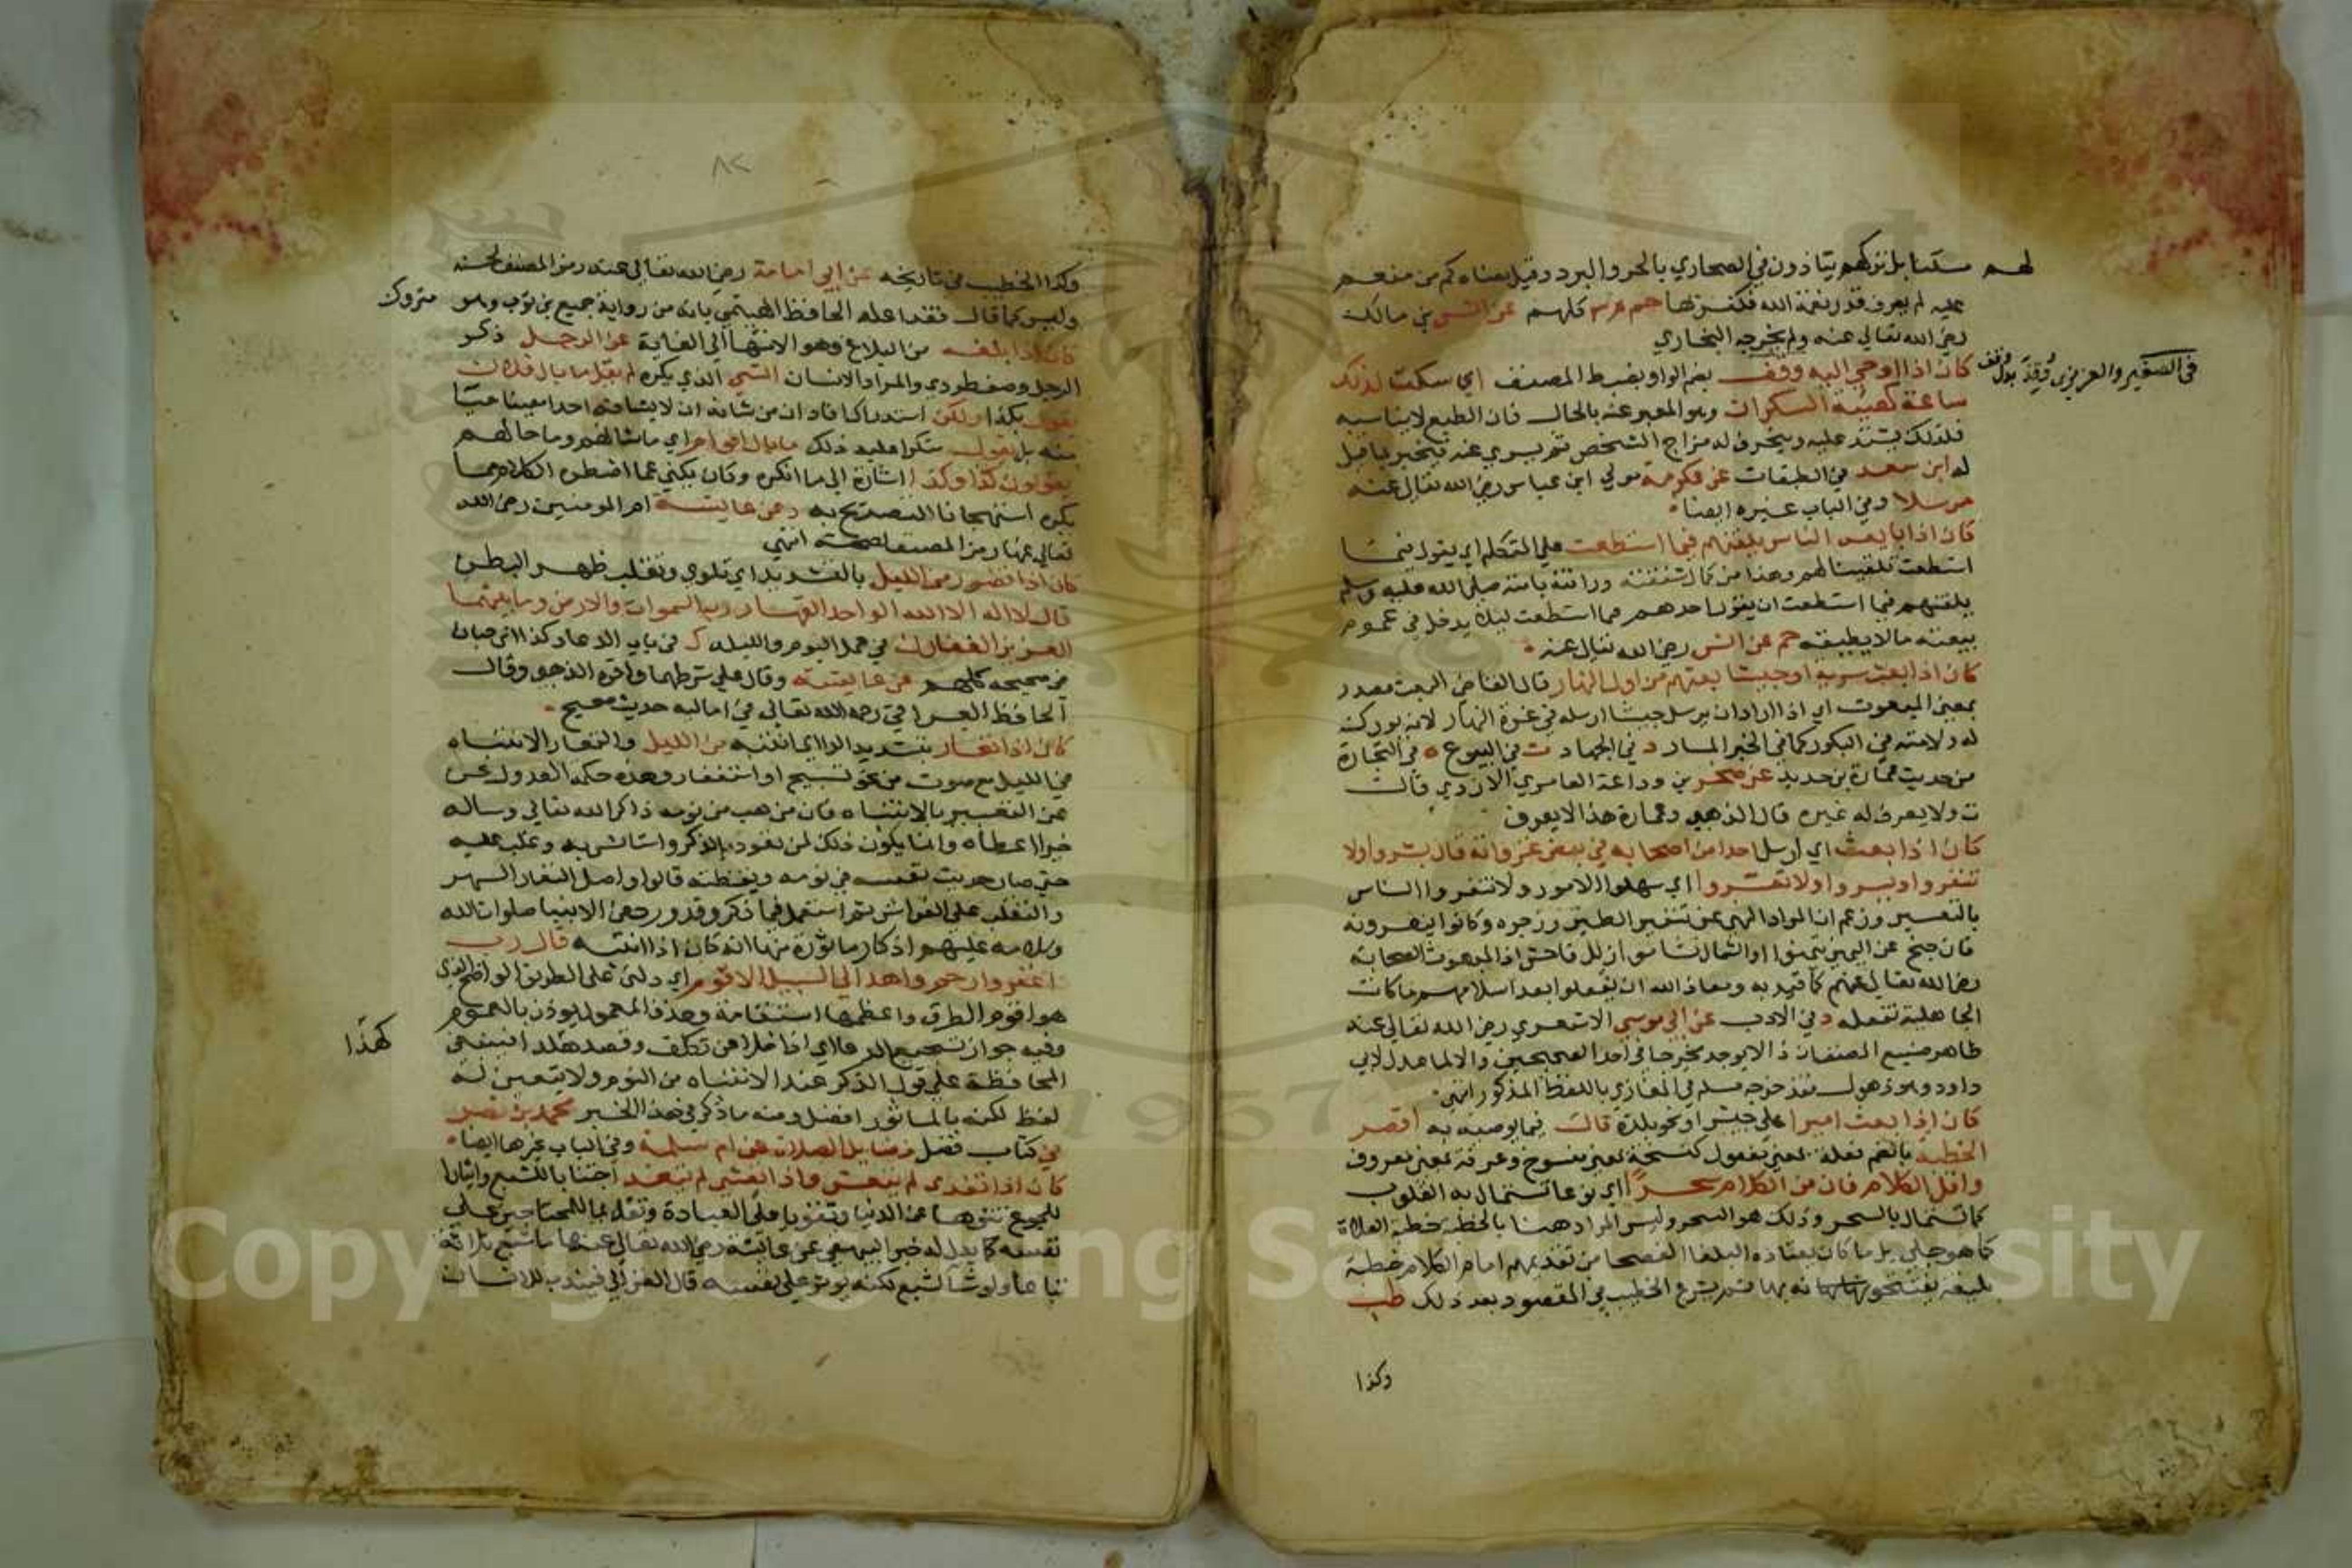 لهم سكنا بل تركهم يتأذون في الصحاري بالحر والبرد وقيل معناه كم من منعم
عليه لم يعرف قدر نعمة الله فكفر بها حم م٣ كلهم عن انس بن مالك
رضي الله تعالى عنه ولم يخرجه البخاري
كان اذا اوحي اليه وقف بضم الواو بضبط المصنف اي سكت لذلك
في الصغير والعزيزي وُقِذَ بدل وقف
ساعة كهيئة السكران وهو المعبر عنه بالحال فان الطبع لا يناسبه
فلذلك يشتد عليه وينحرف له مزاج الشخص ثم يسري عنه فيخبر بما قيل
له ابن سعد في الطبقات عن عكرمة مولي ابن عباس رضي الله تعالى عنه
مرسلا وفي الباب غيره ايضا
كان اذا بايعه الناس يلقنهم فيما استطعت علي التكلم اي يقول فيما
استطعت تلقينا لهم وهذا من كمال شفقته ورأفته بامته صلي الله عليه وسلم
يلقنهم فيما استطعت ان يقول احدهم فيما استطعت ليلا يدخل في عموم
بيعته مالا يطيقه حم عن انس رضي الله تعالى عنه
كان اذا بعث سرية او جيشا بعثهم من اول النهار قال القاضي البعث مصدر
بمعني المبعوث اي اذا اراد ان يرسل جيشا ارسله في غرة النهار لانه بورك
له ولامته في البكور كما في الخبر المار د في الجهاد ت في البيوع ه في التجارة
من حديث عمارة بن حديد عن صخر بن وداعة العامري الازدي قال
ت ولا يعرف له غيره قال الذهبي وعمارة هذا لا يعرف
كان اذا بعث اي ارسل احدا من اصحابه في بعض غزواته قال بشروا ولا
تنفروا ويسروا ولا تعسروا اي سهلوا الامور ولا تنفروا الناس
بالتعسير وزعم ان المراد النهي عن تنفير الطير وزجره وكانوا ينفرونه
فان جنح عن اليمين تيمنوا او الشمال تشأموا زلل فاحش اذ المبعوث الصحابة
رضي الله تعالى عنهم كما قيد به ومعاذ الله ان يفعلوا بعد اسلامهم ما كانت
الجاهلية تفعله د في الادب عن ابي موسي الاشعري رضي الله تعالى عنه
ظاهر صنيع المصنف ان ذا لا يوجد مخرجا في احد الصحيحين والا لما عدل لابي
داود وهو ذهول فقد خرجه مسلم في المغازي باللفظ المذكور انتهى
كان اذا بعث اميرا علي جيش او نحو بلدة قال فيما يوصيه به اقصر
الخطبة بالضم فعلة بمعني مفعول كنسخة بمعني منسوخ وغرفة بمعني مغروف
واقل الكلام فان من الكلام سحرا اي نوعا تستمال به القلوب
كما تستمال بالسحر وذلك هو السحر وليس المراد هنا بالخطبة خطبة الصلاة
كما هو جلي بل ما كان يعتاده البلغا الفصحا من تقديمهم امام الكلام خطبة
بليغة يفتتحونه بها ثم يشرع الخطيب في المقصود بعد ذلك طب
وكذا
٨٢
وكذا الخطيب في تاريخه عن ابي امامة رضي الله تعالى عنه رمز المصنف لحسنه
وليس كما قال فقد اعله الحافظ الهيتمي بانه من رواية جميع بن ثوب وهو متروك
كان اذا بلغه من البلاغ وهو الانتهاء الي الغاية عن الرجل ذكر
الرجل وصف طردي والمراد الانسان الشي الذي يكره لم يقل ما بال فلان
يقول بكذا ولكن استدراكا فاد ان من شانه ان لا يشافه احدا معينا حيا
منه بل يقول منكرا عليه ذلك ما بال اقوام اي ما شانهم وما حالهم
يقولون كذا وكذا اشارة الي ما انكره وكان يكني عما اضطره الكلام مما
يكره استهجانا للتصريح به د عن عايشة ام المومنين رضي الله
تعالي عنها رمز المصنف لصحته انتهي
كان اذا تضور من الليل بالتشديد اي تلوي وتقلب ظهر البطن
قال لا اله الا الله الواحد القهار رب السموات والارض وما بينهما
العزيز الغفار ن في عمل اليوم والليلة ك في باب الدعا وكذا ابن حبان
في صحيحه كلهم عن عايشة وقال علي شرطهما واقره الذهبي وقال
الحافظ العراقي رحمه الله تعالى في اماليه حديث صحيح
كان اذا تعار بتشديد الرا اي انتبه من الليل والتعار الانتباه
في الليل مع صوت من نحو تسبيح او استغفار وهذه حكمه العدول عن
عن التعبير بالانتباه فان من هب من نومه ذاكرا لله تعالي وساله
خيرا اعطاه وانما يكون ذلك لمن تعود بالذكر واستانس به وغلب عليه
حتي صار حديث نفسه في نومه ويقظته قالوا واصل التعار السهر
والتقلب علي الفراش ثم استعمل فيما ذكر وقد ورد عن الانبيا صلوات الله
وسلامه عليهم اذكار ماثورة منها انه كان اذا انتبه قال رب
اغفر وارحم واهدا لي السبيل الاقوم اي دلني علي الطريق الواضح الذي
هو اقوم الطرق واعظمها استقامة وحذف المعمول ليوذن بالعموم
وفيه جواز تسجيع الدعا اي اذا خلا عن تكلف وقصد كهذا فينبغي
كهذا
المحافظة علي قول الذكر عند الانتباه من النوم ولا يتعين له
لفظ لكنه بالماثور افضل ومنه ما ذكر في هذا الخبر محمد بن نصر
في كتاب فضل فضايل الصلاة عن ام سلمة وفي الباب غيرها ايضا
كان اذا تغدي لم يتعش واذا تعشي لم يتغد اجتنابا للشبع وايثارا
للجوع تنزها عن الدنيا وتقويا علي العبادة وتقديما للمحتاجين علي
نفسه كما يدل له خبر البيهقي عن عايشة رضي الله تعالى عنها ما شبع ثلاثة
تباعا ولو شا لشبع لكنه يوثر علي نفسه قال الغزالي فيندب للانسان